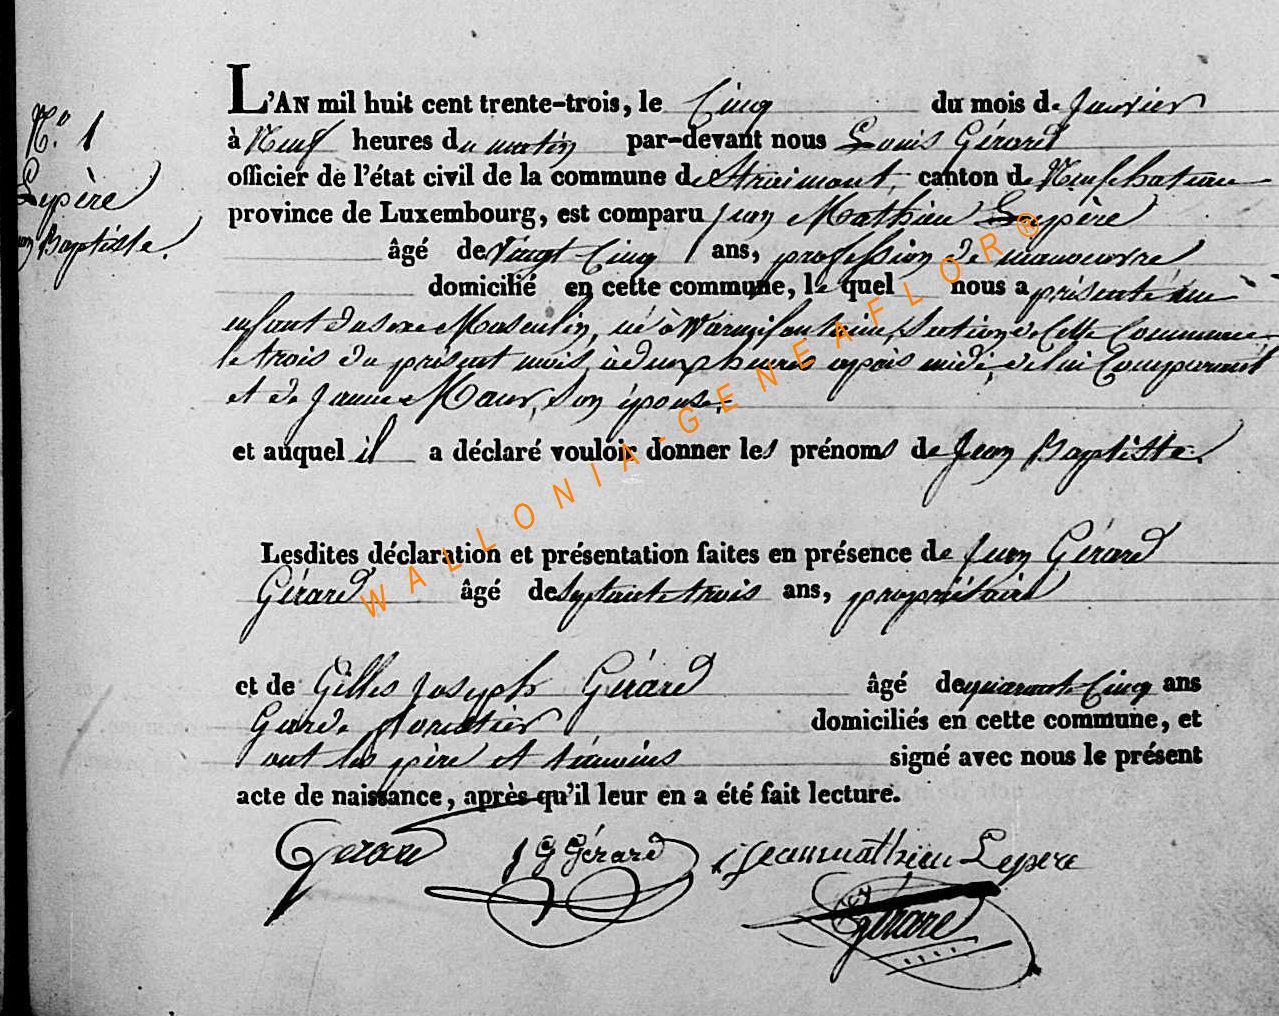 N.º 1
Lepère
Jean Baptiste.
L'AN mil huit cent trente-trois, le Cinq du mois de Janvier
à Neuf heures du matin par-devant nous Louis Gérard
officier de l'état civil de la commune de Straimont, canton de Neufchateau
province de Luxembourg, est comparu Jean Mathieu Lepère
âgé de Vingt Cinq ans, profession de manoeuvre
domicilié en cette commune, le quel nous a présenté un
enfant du sexe Masculin, né à Warmifontaine, Section de Cette Commune,
le trois du présent mois, à deux heures après midi, de lui Comparant
et de Jeanne Maur, son épouse,
et auquel il a déclaré vouloir donner les prénoms de Jean Baptiste.
Lesdites déclaration et présentation faites en présence de Jean Gérard
Gérard âgé de septante trois ans, propriétaire
et de Gilles Joseph Gérard âgé de quarante Cinq ans
Garde forestier domiciliés en cette commune, et
ont les père et témoins signé avec nous le présent
acte de naissance, après qu'il leur en a été fait lecture.
Gerard J G Gérard Jeanmathieu Lepere
Gérard
WALLONIA-GENEAFLOR®